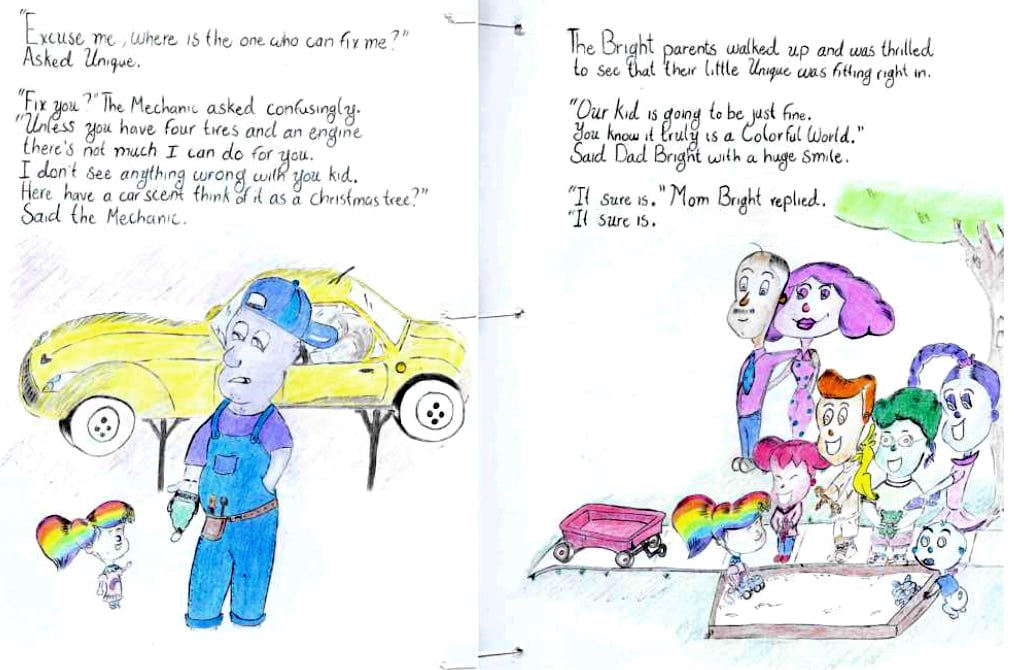 "Excuse me, where is the one who can fix me?"
Asked Unique.
"Fix you?" The Mechanic asked confusingly.
"Unless you have four tires and an engine
there's not much I can do for you.
I don't see anything wrong with you kid.
Here have a car scent think of it as a christmas tree?"
Said the Mechanic.
The Bright parents walked up and was thrilled
to see that their little Unique was fitting right in.
"Our kid is going to be just fine.
You know it truly is a Colorful World."
Said Dad Bright with a huge smile.
"It sure is." Mom Bright replied.
"It sure is.